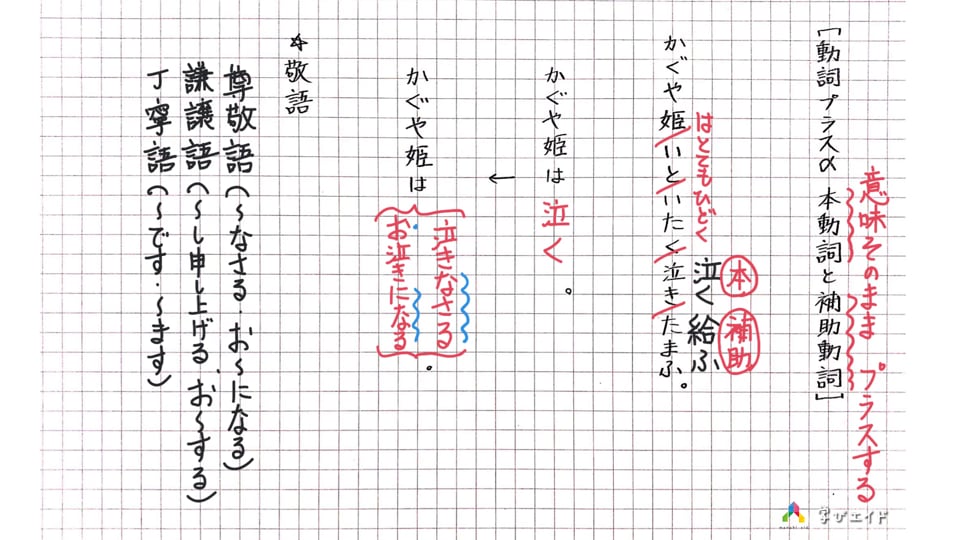 意味そのまま　プラスする
［動詞プラスα　本動詞と補助動詞］
本　補助
泣く給ふ
はとてもひどく
かぐや姫いといたく泣きたまふ。
かぐや姫は泣く。
↓
かぐや姫は
泣きなさる
お泣きになる。
☆敬語
尊敬語（〜なさる・お〜になる）
謙譲語（〜し申し上げる・お〜する）
丁寧語（〜です・〜ます）
学びエイド